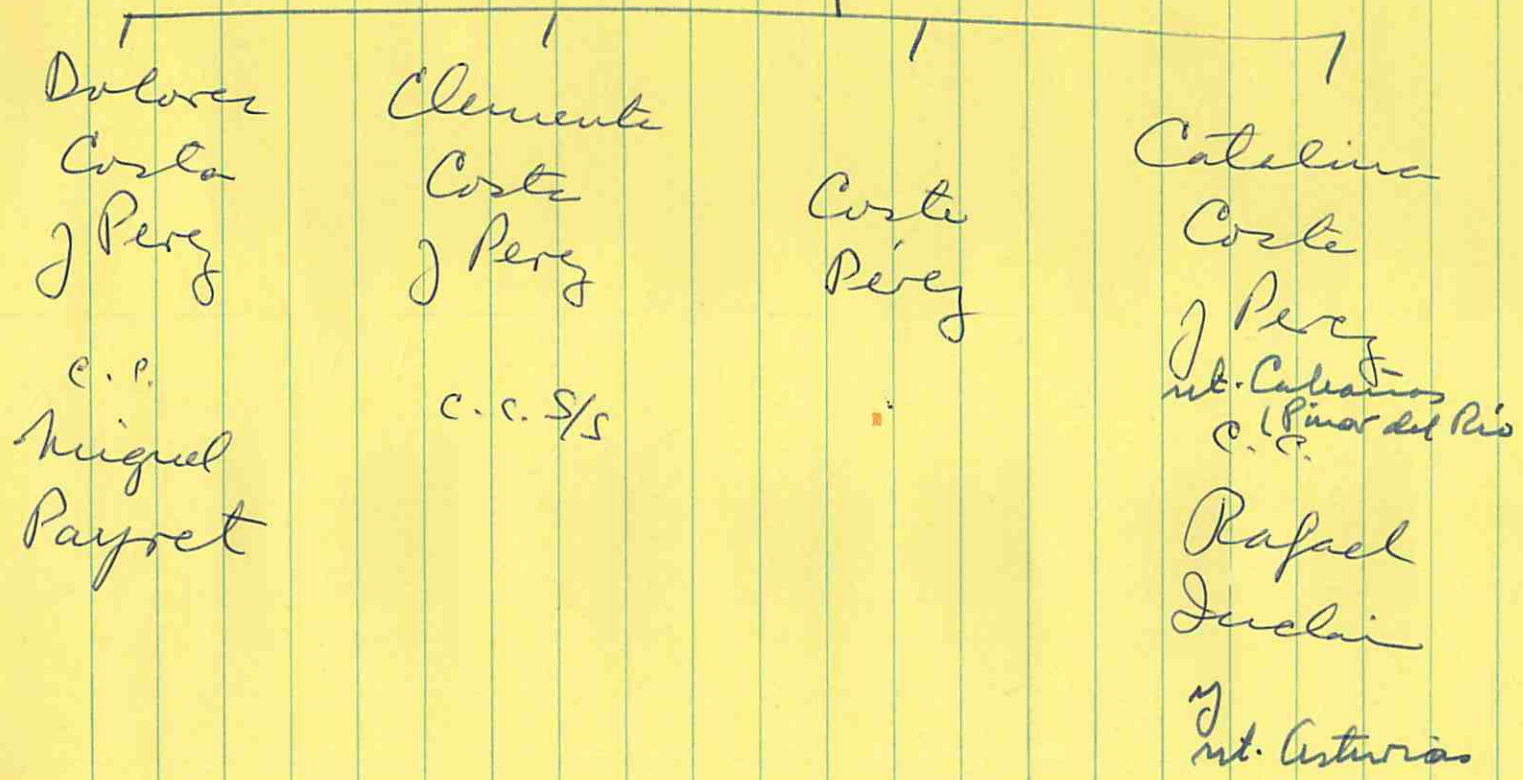 Dolores
Costa
y Perez
c.c.
Miguel
Payret
Clemente
Costa
y Perez
c.c. S/S
Costa
Pérez
Catalina
Costa
y Perez
nt. Cabañas
(Pinar del Río
c.c.
Rafael
y
nt. Asturias